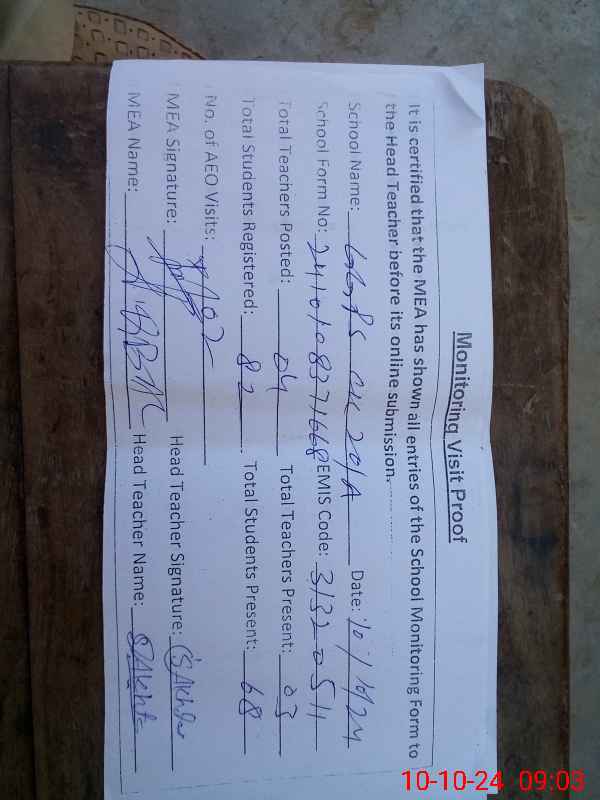 Monitoring Visit Proof
It is certified that the MEA has shown all entries of the School Monitoring Form to
the Head Teacher before its online submission.
School Name: GGPS CK 201A Date: 10/10/24
School Form No: 2410108371668 EMIS Code: 31320511
Total Teachers Posted: 04 Total Teachers Present: 03
Total Students Registered: 82 Total Students Present: 68
No. of AEO Visits: 02
MEA Signature: Head Teacher Signature: SAkhtar
MEA Name: Head Teacher Name: SAkhtr
10-10-24 09:03